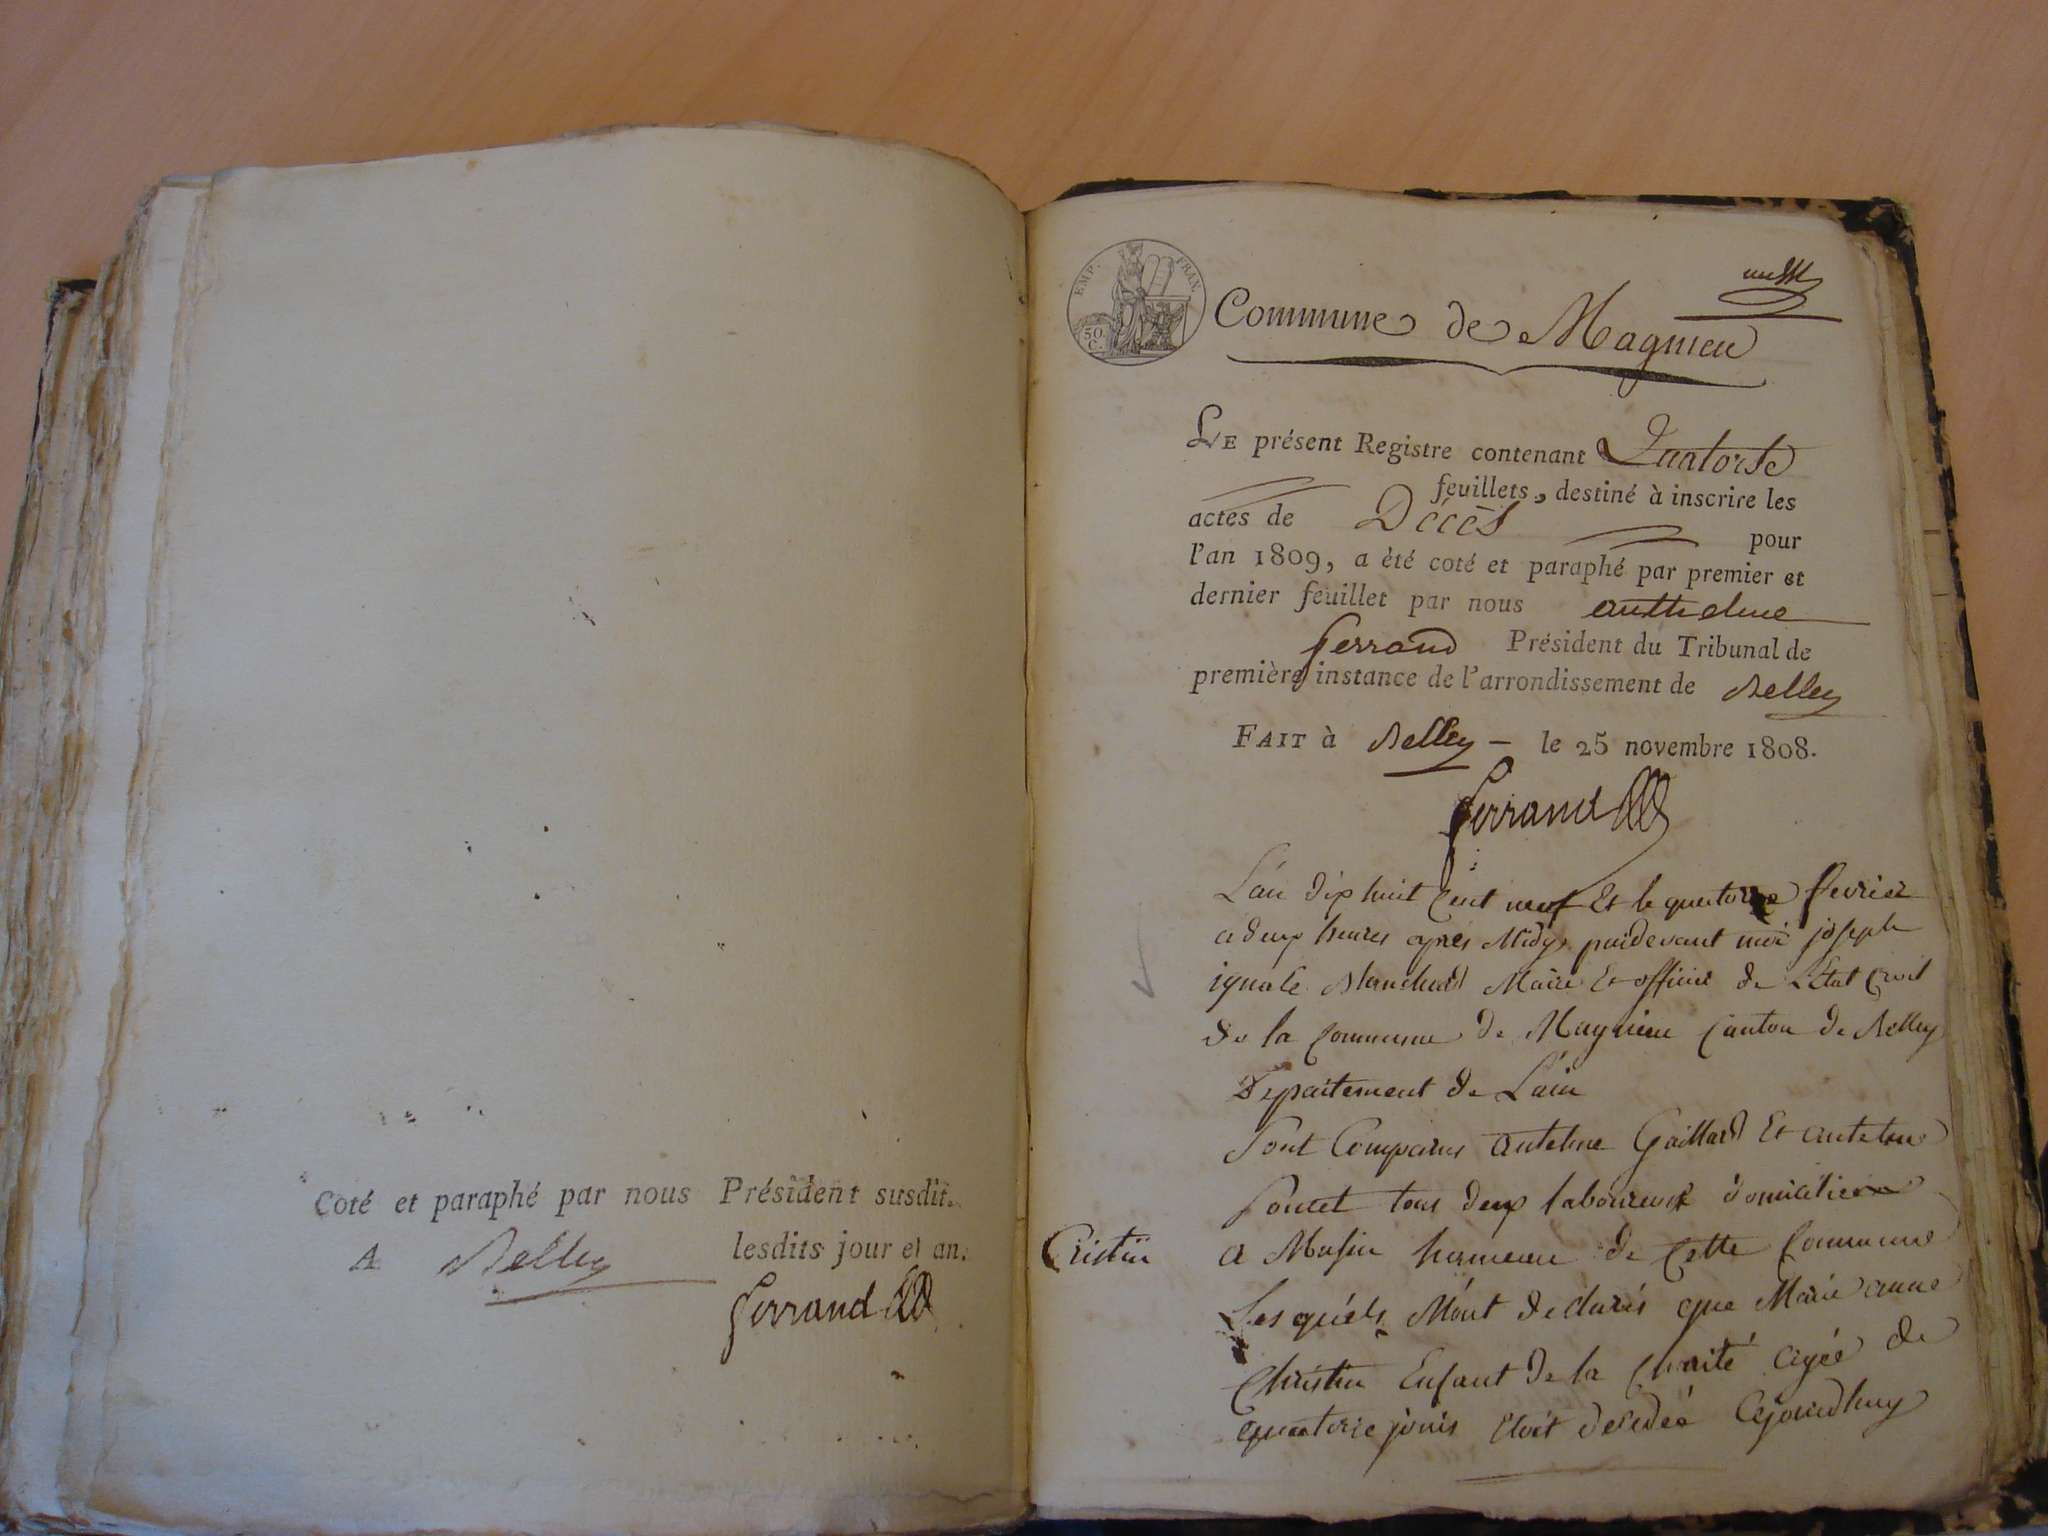 Coté et paraphé par nous Président susdit.
lesdits jour et an.
A Belley
Ferrand
EMP. FRAN.
50.
C.
Commune de Magnieu
LE présent Registre contenant Quatorse
feuillets, destiné à inscrire les
actes de Décès pour
l'an 1809, a été coté et paraphé par premier et
dernier feuillet par nous anthelme
ferrand Président du Tribunal de
première instance de l'arrondissement de Belley
FAIT à Belley – le 25 novembre 1808.
Ferrand
L'an dix huit Cent neuf Et le quatorze fevrier
a deux heures apres Midy pardevant moi joseph
ignace Blanchard Maire Et officier de L'Etat Civil
de la Commune de Magnieu Canton de Belley
Departement de Lain
Sont Comparus antelme Gaillard Et antelme
Poncet tous deux laboureurs domicilies
Cristin
a Musin hameau de Cette Commune
Les quels M'ont declarés que Marie anne
Christin Enfant de la Charité agée de
quatorze jours Etoit decedée Cejourdhuy